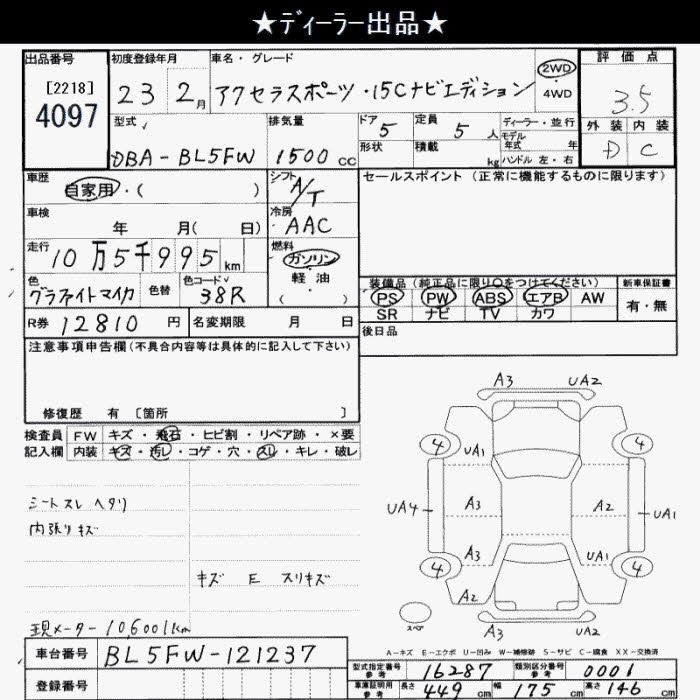 ★ディーラー出品★
出品番号
[2218]
4097
初度登録年月
23 2月
車名・グレード
アクセラスポーツ・15Cナビエディション
2WD
4WD
評価点
3.5
外装 内装
D C
型式
DBA-BL5FW
排気量
1500 cc
ドア 5
形状
定員 5 人
積載 kg
ディーラー・並行
モデル
年式 年
ハンドル 左・右
車歴
自家用・( )
シフト A/T
車検
年 月( 日)
冷房 AAC
走行
10万5千995km
燃料
ガソリン
軽・油
( )
色
グラファイトマイカ
色替
色コード 38R
R券 12810円
名変期限 月 日
セールスポイント(正常に機能するものに限ります)
装備品(純正品に限り○をつけてください)
PS PW ABS エアB AW
SR ナビ TV カワ
新車保証書
有・無
後日品
注意事項申告欄(不具合内容等は具体的に記入して下さい)
修復歴 有 [箇所 ]
検査員 FW キズ・飛石・ヒビ割・リペア跡・×要
記入欄 内装 キズ・汚レ・コゲ・穴・スレ・キレ・破レ
シートスレ ヘタリ
内張リキズ
キズ E スリキズ
現メーター 106001km
A3 UA2
4 4
UA1
UA4 A3 A2 UA1
A3 UA1
4 4
A2
A3 UA2
スペア
A-キズ E-エクボ U-凹み W-補修跡 S-サビ C-腐食 XX-交換済
車台番号 BL5FW-121237
登録番号
型式指定番号 参考 16287
類別区分番号 参考 0001
車庫証明用 参考 長さ 449cm 幅 175cm 高さ 146cm